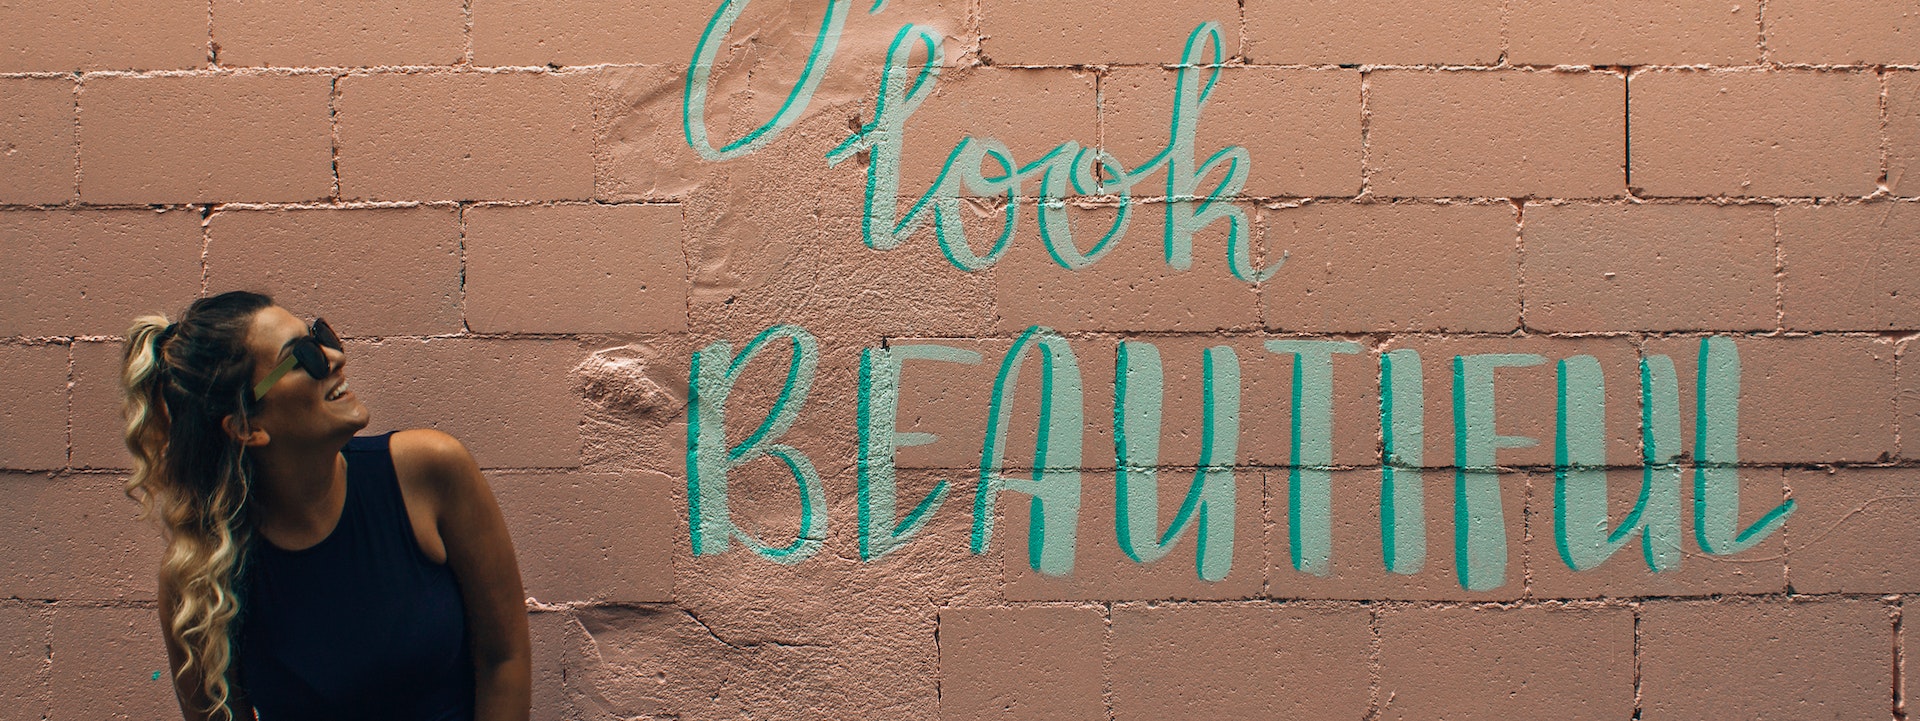 look
BEAUTIFUL